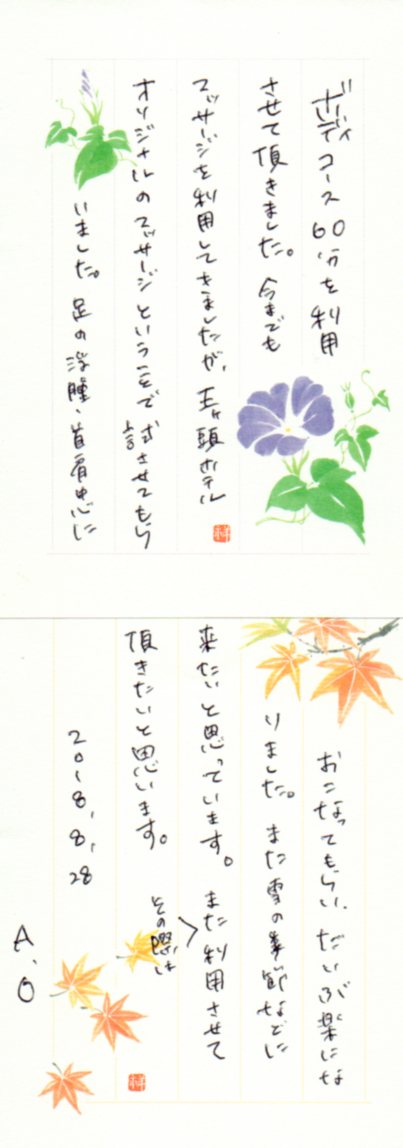 ボディコース60分を利用
させて頂きました。今までも
マッサージを利用してきましたが、王ヶ頭ホテル
オリジナルのマッサージということで試させてもら
いました。足の浮腫、首肩中心に
おこなってもらい、だいぶ楽にな
りました。また雪の季節などに
来たいと思っています。また利用させて
その際は
頂きたいと思います。
2018,8,28
A.O